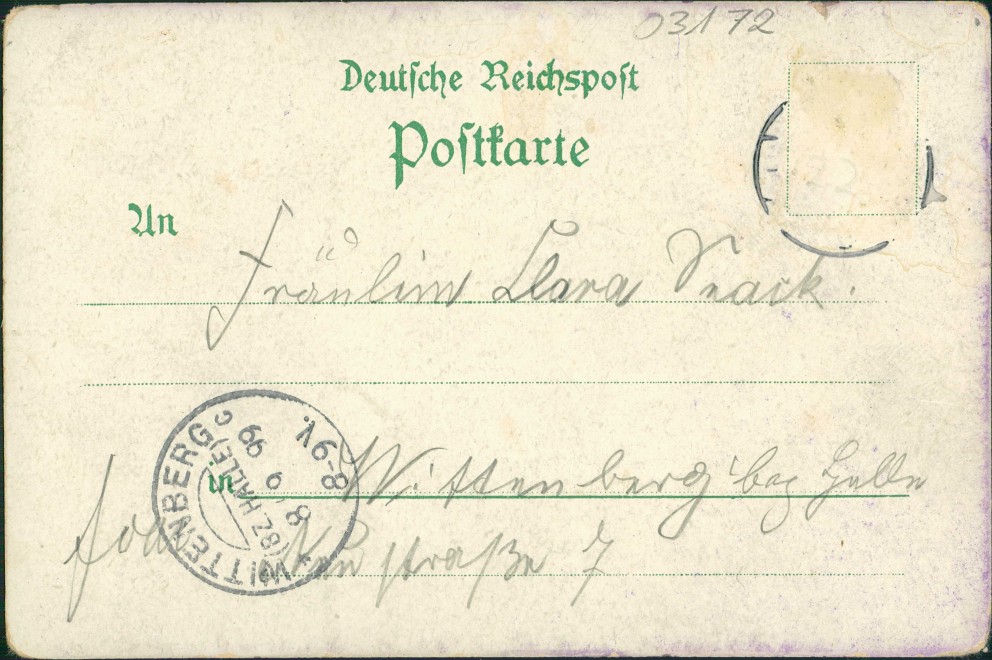 03172
Deutsche Reichspost
Postkarte
An
Fräulein Clara
in Wittenberg bez Halle
Neustraße 7
WITTENBERG
(BZ. HALLE)
8 9 99
8-9V.